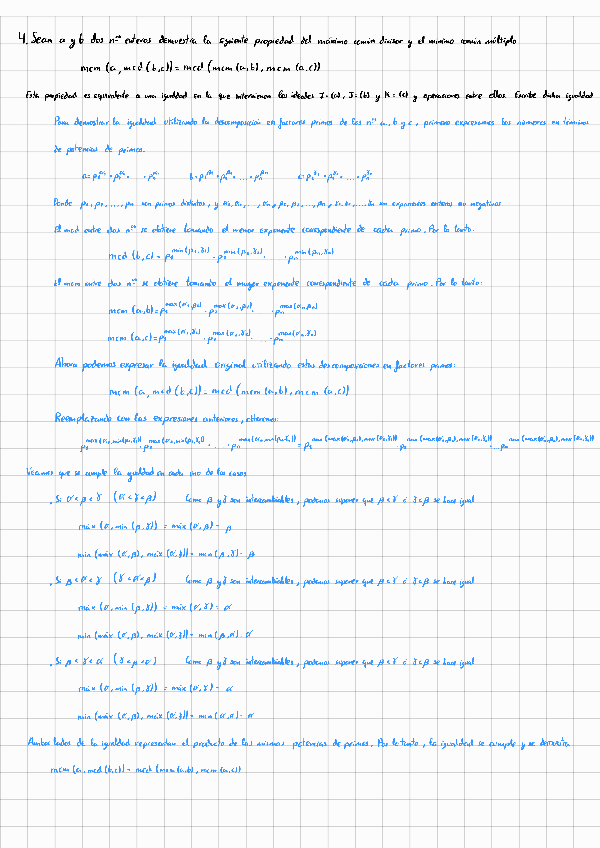 4. Sean a y b dos nºˢ enteros demuestra la siguiente propiedad del máximo común divisor y el mínimo común múltiplo
mcm (a, mcd (b,c)) = mcd (mcm (a,b), mcm (a,c))
Esta propiedad es equivalente a una igualdad en la que intervienen los ideales I=(a), J=(b) y K=(c) y operaciones entre ellos. Escribe dicha igualdad
Para demostrar la igualdad utilizando la descomposición en factores primos de los nºˢ a, b y c, primero expresamos los números en términos
de potencias de primos.
a = p₁^α₁ · p₂^α₂ · ... · pₙ^αₙ b = p₁^β₁ · p₂^β₂ · ... · pₙ^βₙ c = p₁^γ₁ · p₂^γ₂ · ... · pₙ^γₙ
Donde p₁, p₂, ..., pₙ son primos distintos, y α₁, α₂, ..., αₙ, β₁, β₂, ..., βₙ, γ₁, γ₂, ..., γₙ son exponentes enteros no negativos
El mcd entre dos nºˢ se obtiene tomando el menor exponente correspondiente de cada primo. Por lo tanto:
mcd (b,c) = p₁^min(β₁,γ₁) · p₂^min(β₂,γ₂) · ... · pₙ^min(βₙ,γₙ)
El mcm entre dos nºˢ se obtiene tomando el mayor exponente correspondiente de cada primo. Por lo tanto:
mcm (a,b) = p₁^max(α₁,β₁) · p₂^max(α₂,β₂) · ... · pₙ^max(αₙ,βₙ)
mcm (a,c) = p₁^max(α₁,γ₁) · p₂^max(α₂,γ₂) · ... · pₙ^max(αₙ,γₙ)
Ahora podemos expresar la igualdad original utilizando estas descomposiciones en factores primos:
mcm (a, mcd (b,c)) = mcd (mcm (a,b), mcm (a,c))
Reemplazando con las expresiones anteriores, obtenemos:
Veamos que se cumple la igualdad en cada uno de los casos
· Si α<β<γ (α<γ<β) Como β y γ son intercambiables, podemos suponer que β<γ ó γ<β se hace igual
máx (α, min (β,γ)) = máx (α,β) = β
min (máx (α,β), máx (α,γ)) = min (β,γ) = β
· Si β<α<γ (γ<α<β) Como β y γ son intercambiables, podemos suponer que β<γ ó γ<β se hace igual
máx (α, min (β,γ)) = máx (α,γ) = α
min (máx (α,β), máx (α,γ)) = min (β,α) = α
· Si β<γ<α (γ<β<α) Como β y γ son intercambiables, podemos suponer que β<γ ó γ<β se hace igual
máx (α, min (β,γ)) = máx (α,γ) = α
min (máx (α,β), máx (α,γ)) = min (α,α) = α
Ambos lados de la igualdad representan el producto de las mismas potencias de primos. Por lo tanto, la igualdad se cumple y se demuestra
mcm (a, mcd (b,c)) = mcd (mcm (a,b), mcm (a,c))